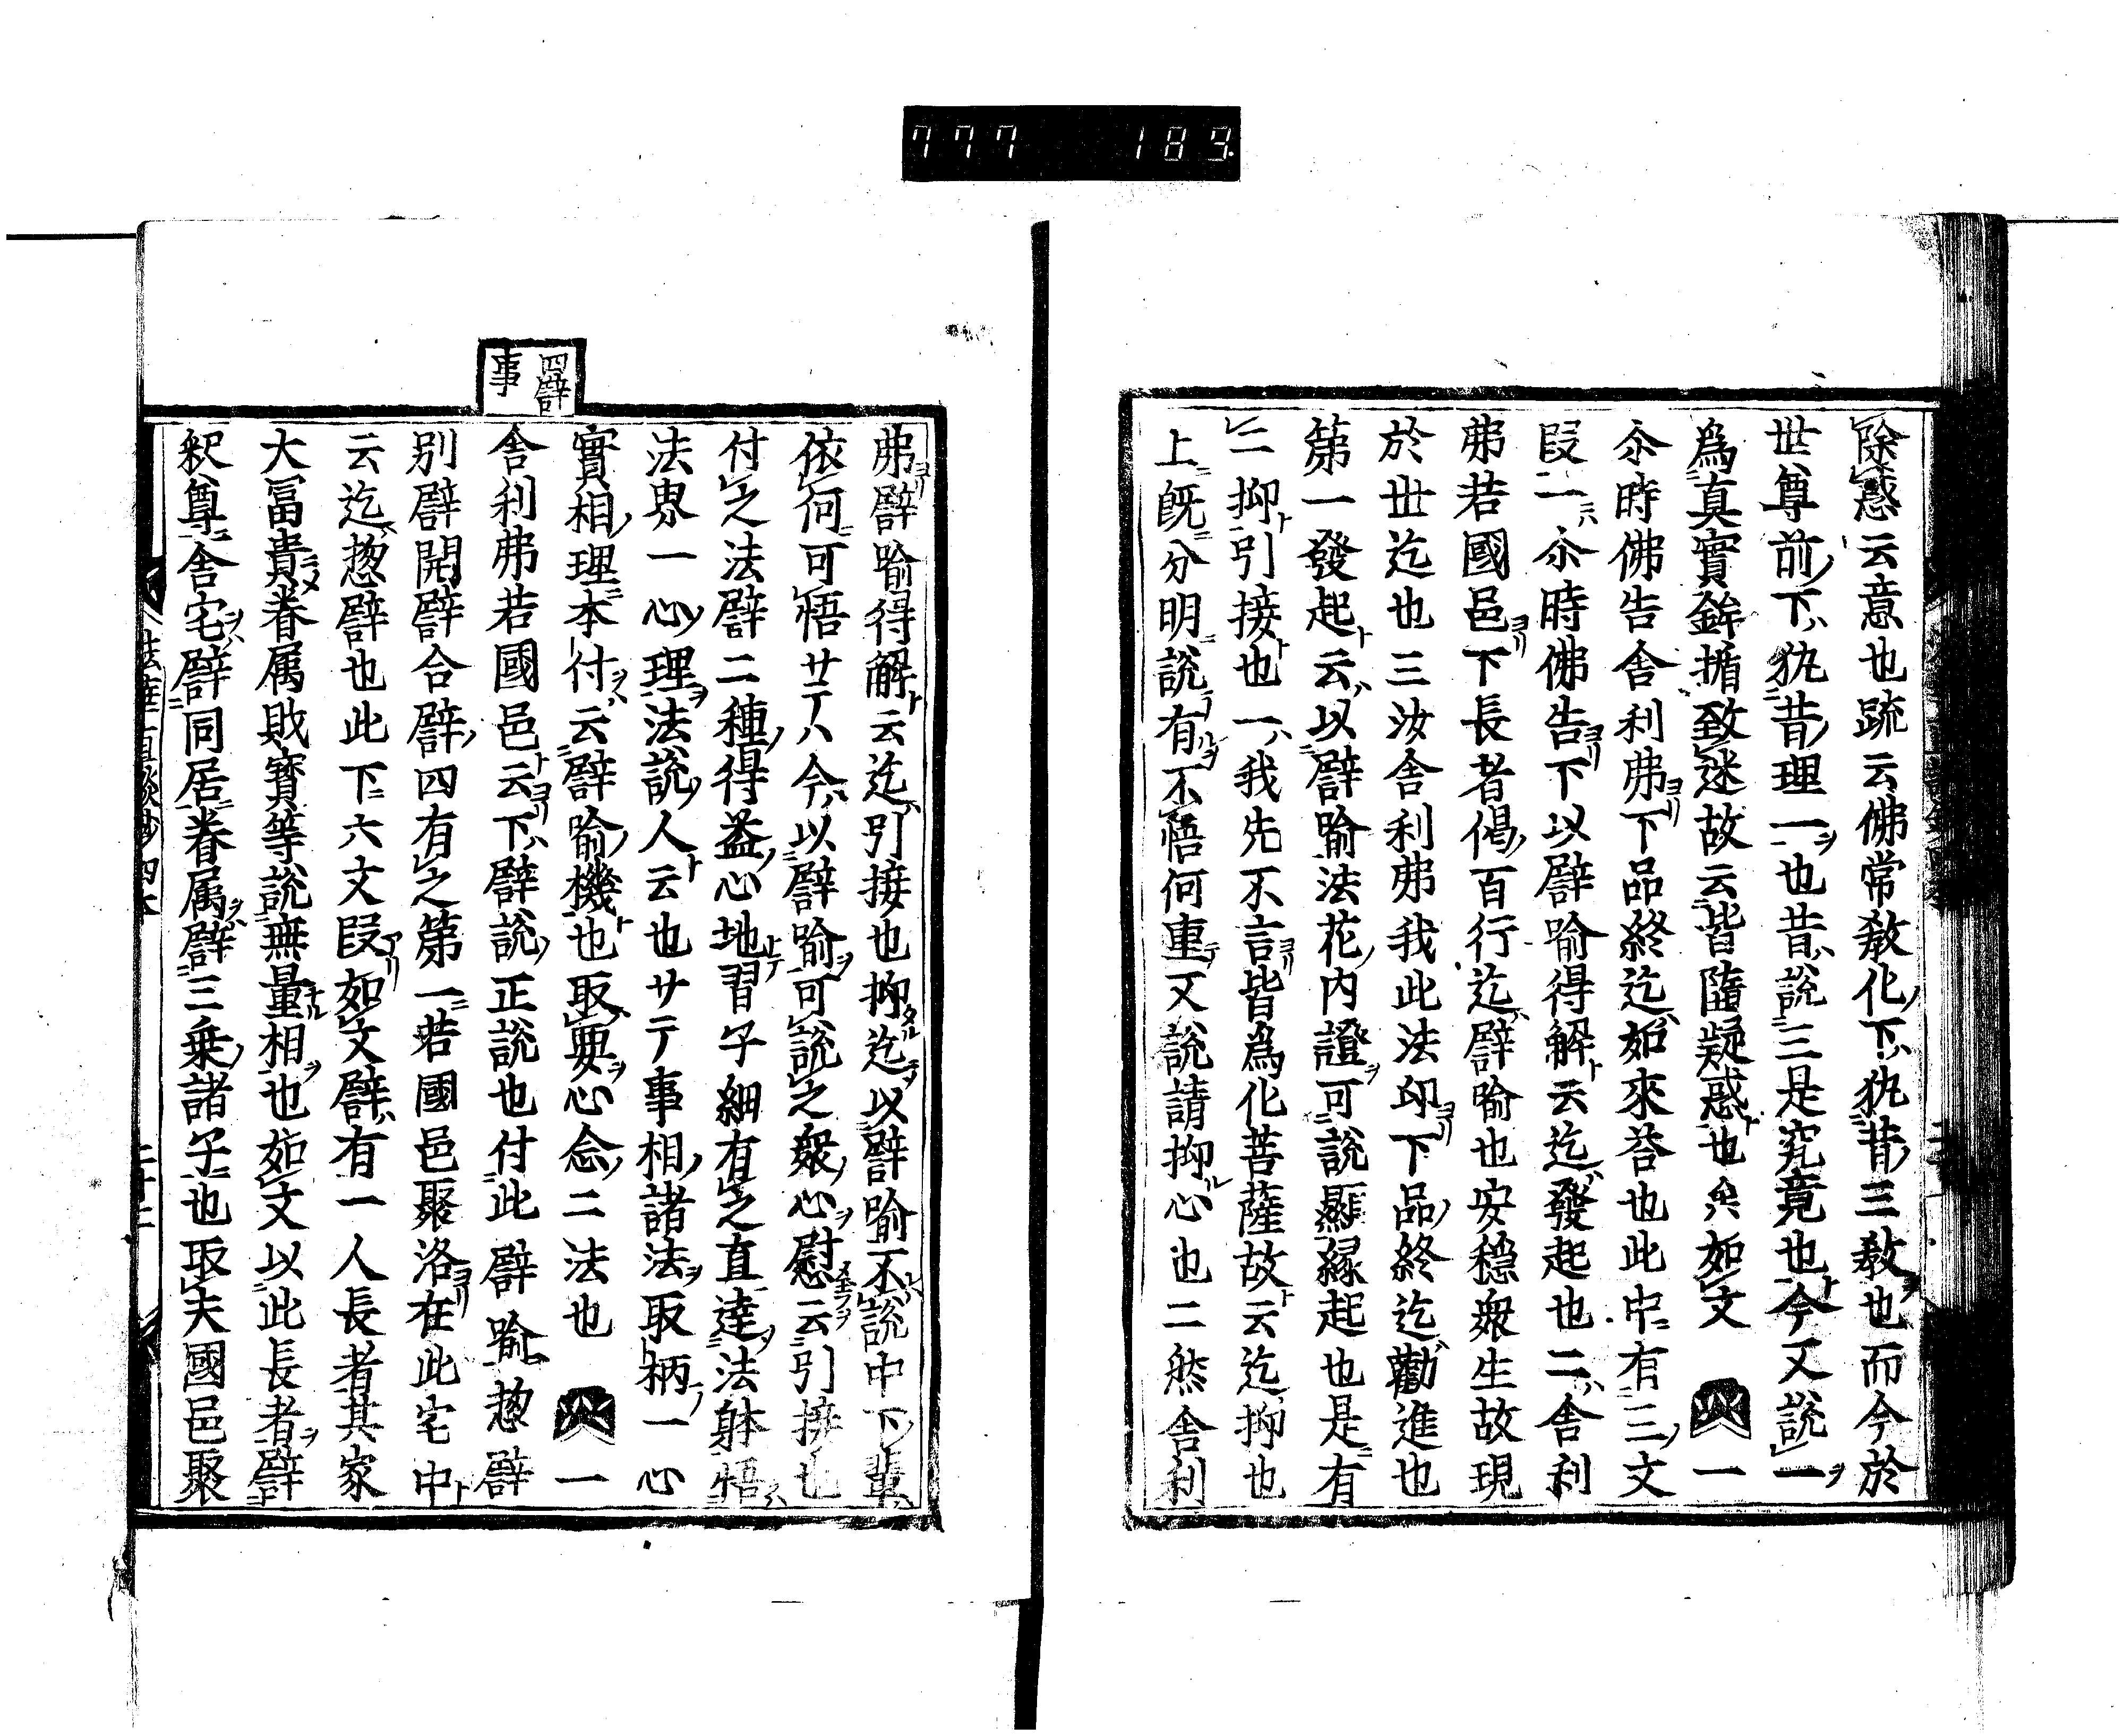 777 189
除惑云意也疏云佛常教化下执昔三教也而今於
世尊前下执昔理一也昔説三是究竟也今又説一
為真實鉾揗致迷故云皆隨疑惑也矣如文 一
尒時佛告舎利弗下品終迄如來荅也此中有三文
段一尒時佛告下以譬喻得解云迄發起也二舎利
弗若國邑下長者偈百行迄譬喻也安穏衆生故現
於世迄也三汝舎利弗我此法印下品終迄勸進也
第一發起云以譬喻法花内證可説顯縁起也是有
二抑引接也一我先不言皆為化菩薩故云迄抑也
上既分明説有不悟何重又説請抑心也二然舎利
弗譬喻得解云迄引接也抑迄以譬喻不説中下輩
依何可悟サテハ今以譬喻可説之衆心慰云引接也
付之法譬二種得益心地習子細有之直達法躰悟
法界一心理法説人云也サテ事相諸法取柄一心
實相理本付云譬喻機也取要心念二法也 一
舎利弗若國邑云下譬説正説也付此譬喻惣譬
別譬開譬合譬四有之第一若國邑聚洛在此宅中
云迄惣譬也此下六文段如文譬有一人長者其家
大冨貴眷属敗寳等説無量相也如文以此長者譬
釈尊舎宅譬同居眷属譬三乗諸子也取夫國邑聚
四譬
事